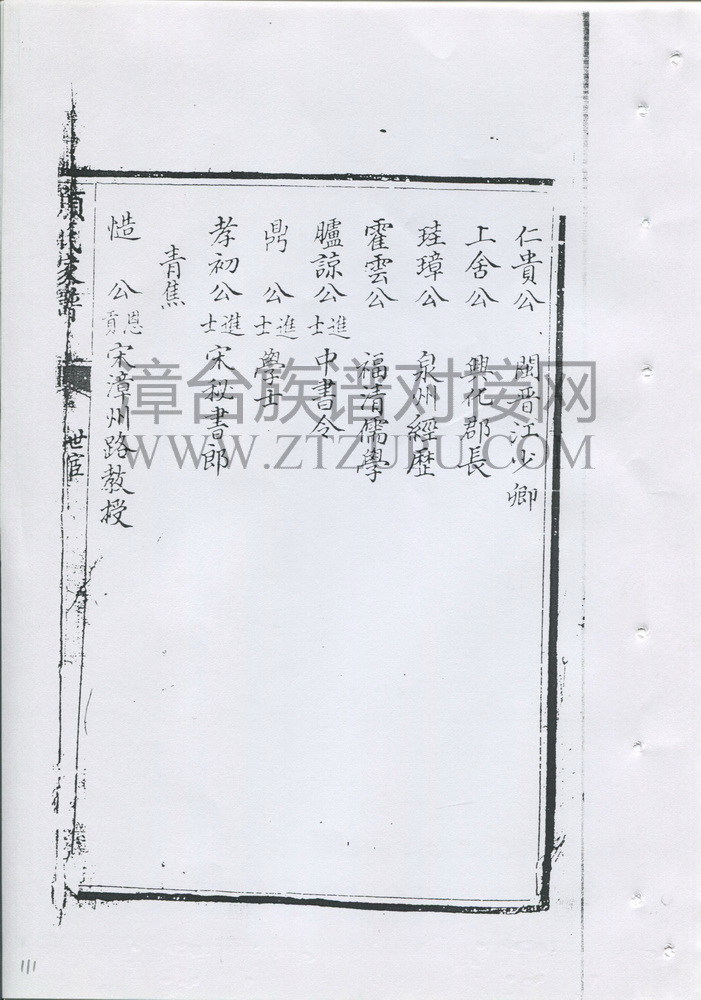 仁貴公 閩晋江少卿
上舍公 興化郡長
珪璋公 泉州經歷
霍雲公 福清儒學
臚諒公進士 中書令
鼎公進士 學士
孝初公進士 宋秘書郎
青焦
慥公恩貢 宋漳州路教授
顏氏家譜
世宦
漳台族谱对接网
WWW.ZTZUPU.COM
111